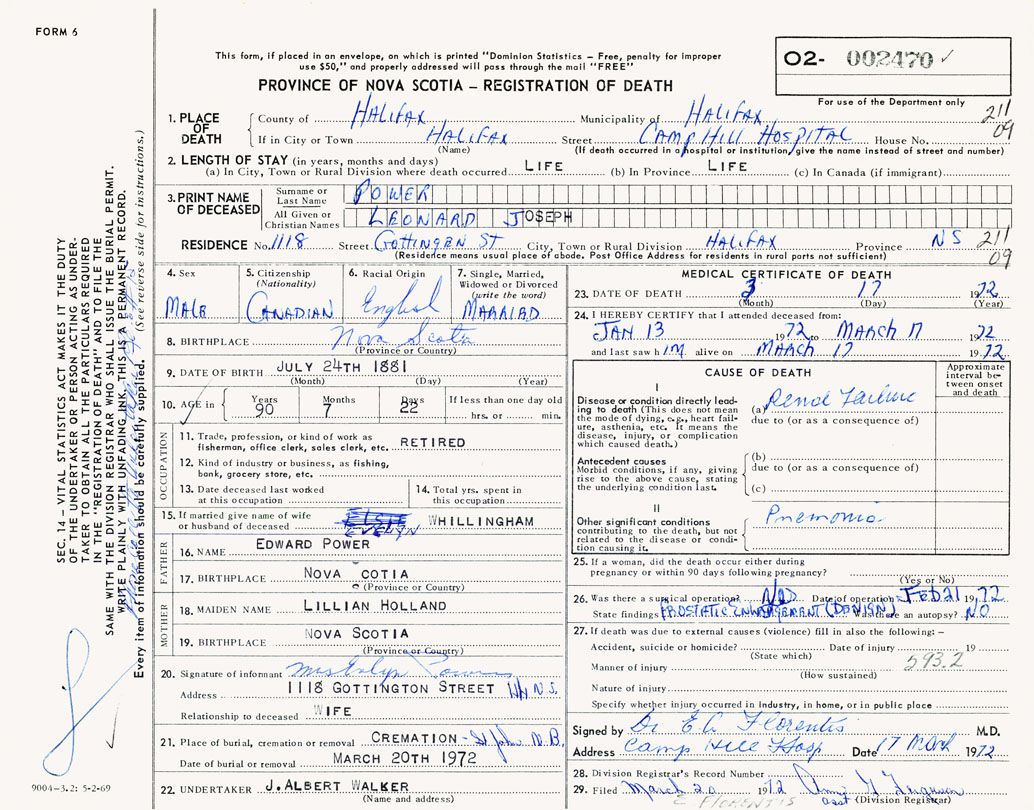 FORM 6
This form, if placed in an envelope, on which is printed "Dominion Statistics – Free, penalty for improper
use $50," and properly addressed will pass through the mail "FREE"
O2- 002470 ✓
For use of the Department only
PROVINCE OF NOVA SCOTIA – REGISTRATION OF DEATH
1. PLACE OF DEATH
County of HALIFAX Municipality of HALIFAX 211
If in City or Town HALIFAX Street CAMP HILL HOSPITAL House No. 09
(Name) (If death occurred in a hospital or institution, give the name instead of street and number)
2. LENGTH OF STAY (in years, months and days)
(a) In City, Town or Rural Division where death occurred LIFE (b) In Province LIFE (c) In Canada (if immigrant)
3. PRINT NAME OF DECEASED
Surname or Last Name POWER
All Given or Christian Names LEONARD JOSEPH
RESIDENCE No. 1118 Street GOTTINGEN ST City, Town or Rural Division HALIFAX Province NS 211
(Residence means usual place of abode. Post Office Address for residents in rural parts not sufficient) 09
4. Sex MALE
5. Citizenship (Nationality) CANADIAN
6. Racial Origin English
7. Single, Married, Widowed or Divorced (write the word) MARRIED
8. BIRTHPLACE Nova Scotia
(Province or Country)
9. DATE OF BIRTH JULY 24TH 1881
(Month) (Day) (Year)
10. AGE in Years 90 Months 7 Days 22 If less than one day old
hrs. or min.
OCCUPATION
11. Trade, profession, or kind of work as
fisherman, office clerk, sales clerk, etc. RETIRED
12. Kind of industry or business, as fishing,
bank, grocery store, etc.
13. Date deceased last worked
at this occupation
14. Total yrs. spent in
this occupation
15. If married give name of wife
or husband of deceased EVELYN WHILLINGHAM
FATHER
16. NAME EDWARD POWER
17. BIRTHPLACE NOVA COTIA
S (Province or Country)
MOTHER
18. MAIDEN NAME LILLIAN HOLLAND
19. BIRTHPLACE NOVA SCOTIA
(Province or Country)
20. Signature of informant Mrs Evelyn Power
Address 1118 GOTTINGTON STREET Hfx N.S.
Relationship to deceased WIFE
21. Place of burial, cremation or removal CREMATION - St John N.B.
Date of burial or removal MARCH 20TH 1972
22. UNDERTAKER J. ALBERT WALKER
(Name and address)
MEDICAL CERTIFICATE OF DEATH
23. DATE OF DEATH 3 17 1972
(Month) (Day) (Year)
24. I HEREBY CERTIFY that I attended deceased from:
JAN 13 1972 to MARCH 17 1972
and last saw him alive on MARCH 17 1972
CAUSE OF DEATH
Approximate interval between onset and death
I
Disease or condition directly leading to death (This does not mean the mode of dying, e.g., heart failure, asthenia, etc. It means the disease, injury, or complication which caused death.)
(a) Renal Failure
due to (or as a consequence of)
Antecedent causes
Morbid conditions, if any, giving rise to the above cause, stating the underlying condition last.
(b)
due to (or as a consequence of)
(c)
II
Other significant conditions
contributing to the death, but not related to the disease or condition causing it.
Pnemonia
25. If a woman, did the death occur either during
pregnancy or within 90 days following pregnancy?
(Yes or No)
26. Was there a surgical operation? Date of operation FEB 21 1972
State findings PROSTATIC ENLARGEMENT (BENIGN) Was there an autopsy? NO
27. If death was due to external causes (violence) fill in also the following: –
Accident, suicide or homicide? Date of injury 19
(State which) 593.2
Manner of injury
(How sustained)
Nature of injury
Specify whether injury occurred in Industry, in home, or in public place
Signed by Dr E.A. Florentis M.D.
Address Camp Hill Hosp Date 17 March 1972
28. Division Registrar's Record Number
29. Filed March 20 1972
(Division Registrar)
E. FLORENTIS
SEC. 14 – VITAL STATISTICS ACT MAKES IT THE DUTY
OF THE UNDERTAKER OR PERSON ACTING AS UNDERTAKER
TO OBTAIN ALL THE PARTICULARS REQUIRED
IN THE "REGISTRATION OF DEATH" AND TO FILE THE
SAME WITH THE DIVISION REGISTRAR WHO SHALL ISSUE THE BURIAL PERMIT.
WRITE PLAINLY WITH UNFADING INK, THIS IS A PERMANENT RECORD.
Every item of information should be carefully supplied. (See reverse side for instructions.)
9004-3.2: 5-2-69